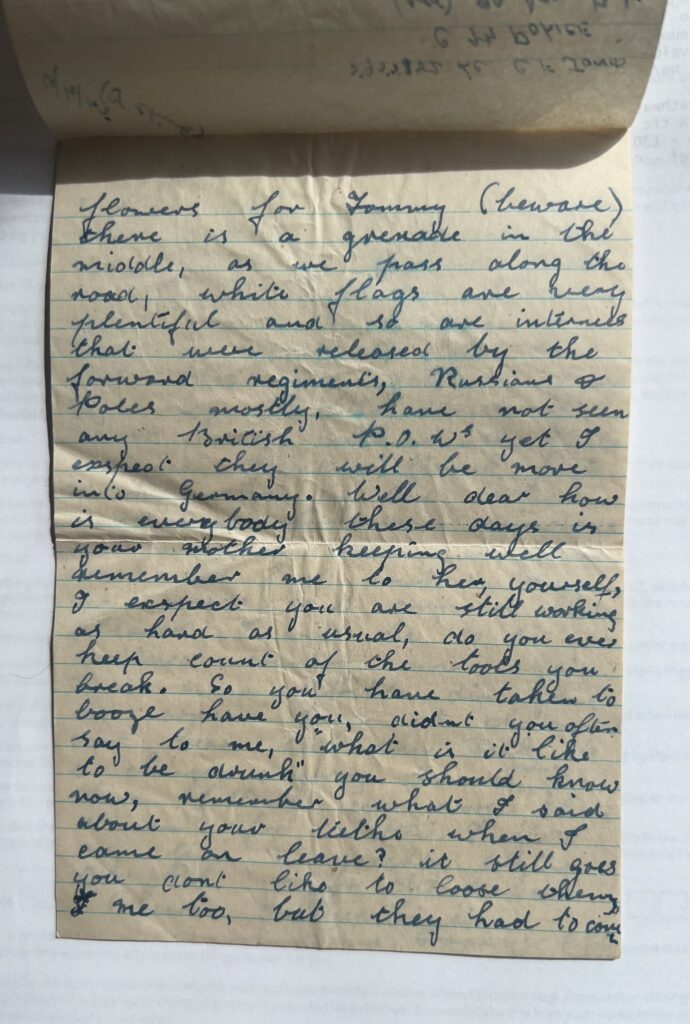 flowers for Tommy (beware)
there is a grenade in the
middle, as we pass along the
road, white flags are very
plentiful and so are internees
that were released by the
forward regiments, Russians &
Poles mostly, have not seen
any British P.O.Ws yet I
exspect they will be more
into Germany. Well dear how
is everybody these days is
your mother keeping well
remember me to her, yourself,
I exspect you are still working
as hard as usual, do you ever
keep count of the tools you
break. So you have taken to
booze have you, didnt you often
say to me, "what is it like
to be drunk" you should know
now, remember what I said
about your teeths when I
came on leave? it still goes
you dont like to loose them,
me too, but they had to come